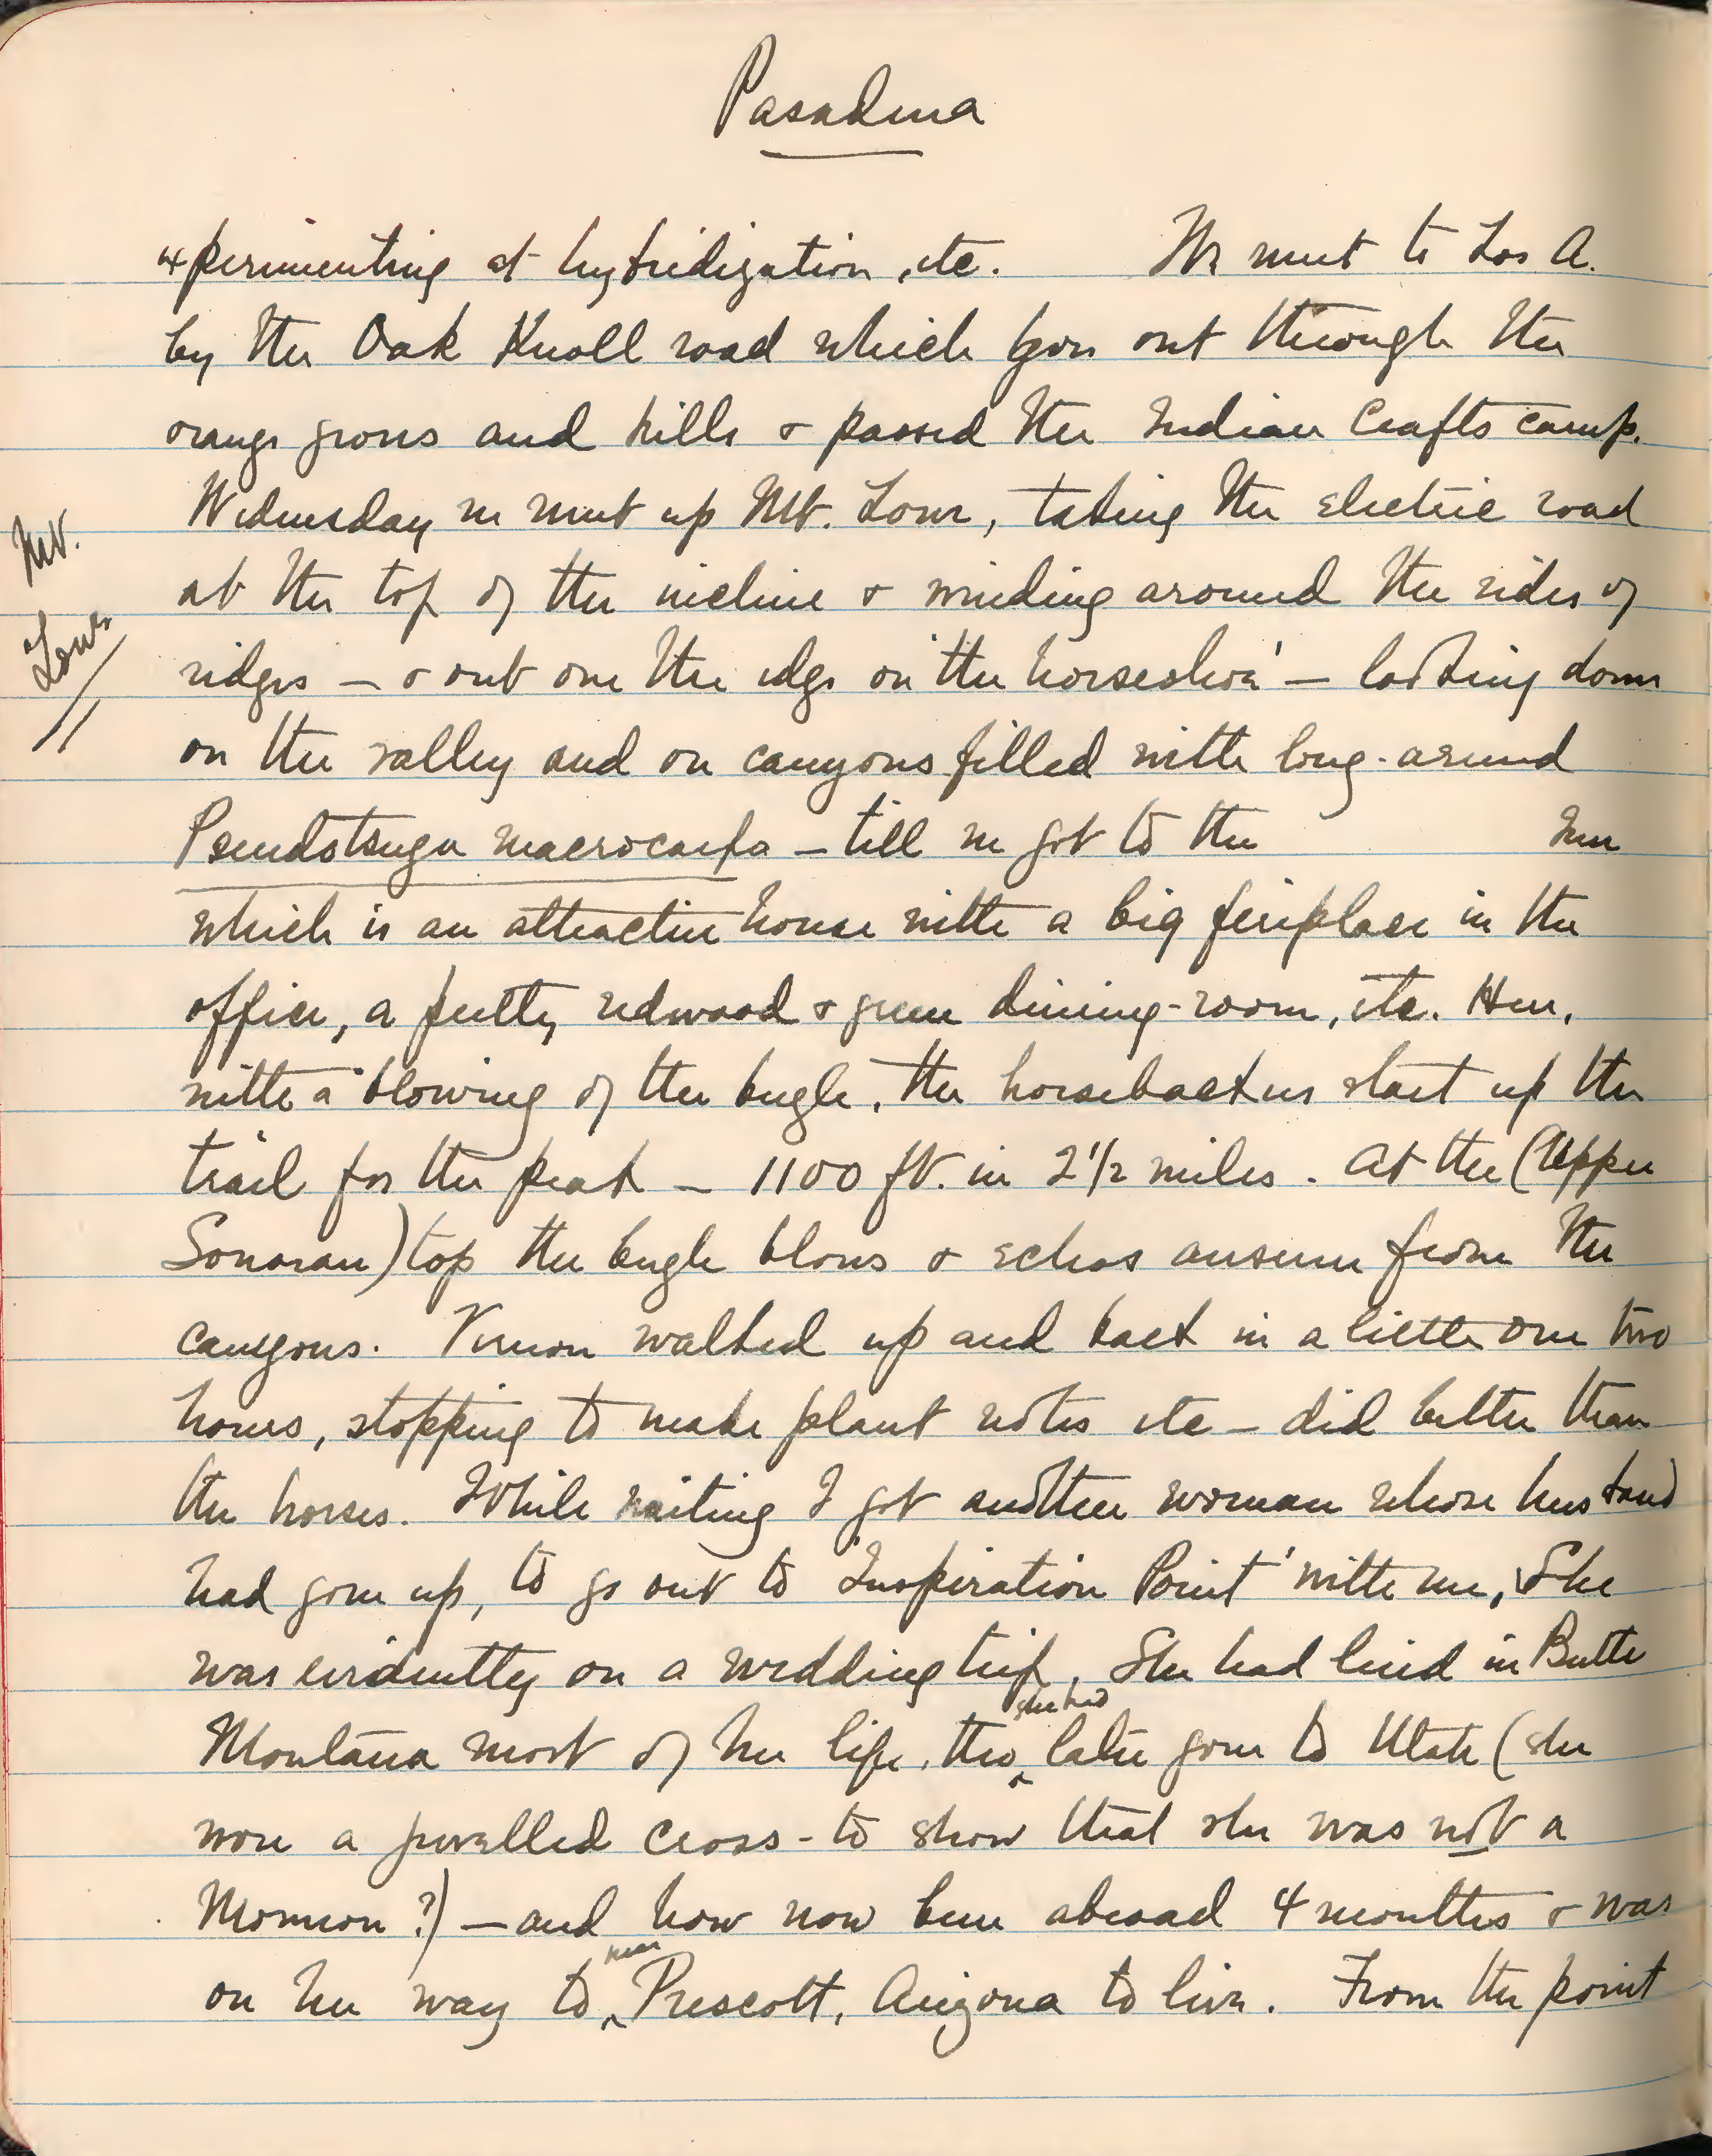 Pasadena
experimenting at hybridization, etc. We went to Los A.
by the Oak Knoll road which goes out through the
orange groves and hills & passed the Indian Crafts camp.
Wednesday we went up Mt. Lowe, taking the electric road
Mt.
Lowe
at the top of the incline & winding around the sides of
ridges — & out over the edge on 'the horseshoe' — looking down
on the valley and on canyons filled with long-armed
Pseudotsuga macrocarpa — till we got to the Inn
which is an attractive house with a big fireplace in the
office, a pretty redwood & green dining-room, etc. Here,
with a blowing of the bugle, the horsebackers start up the
trail for the peak — 1100 ft. in 2 1/2 miles. At the (Upper
Sonoran) top the bugle blows & echos answer from the
canyons. Vernon walked up and back in a little over two
hours, stopping to make plant notes etc — did better than
the horses. While waiting I got another woman whose husband
had gone up, to go out to 'Inspiration Point' with me, She
was evidently on a wedding trip. She had lived in Butte
Montana most of her life, tho she had later gone to Utah (she
wore a jewelled cross - to show that she was not a
Mormon?) — and how now been abroad 4 months & was
on her way to near Prescott, Arizona to live. From the point